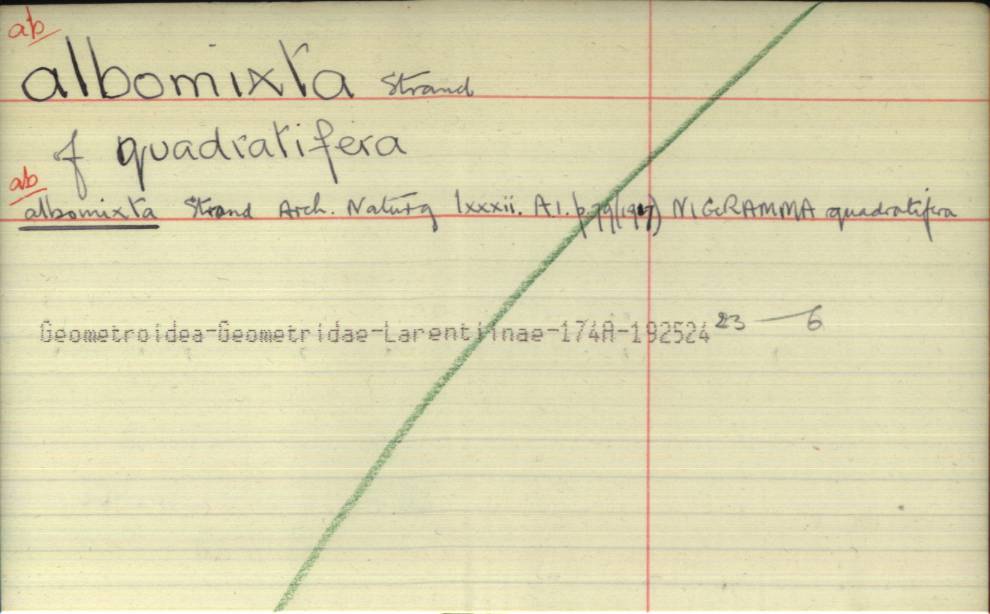 ab
albomixta Strand
f quadratifera
ab
albomixta Strand Arch. Naturg lxxxii. A1. p.79 (1917) NIGRAMMA quadratifera
Geometroidea-Geometridae-Larentiinae-174A-192524 23 — 6